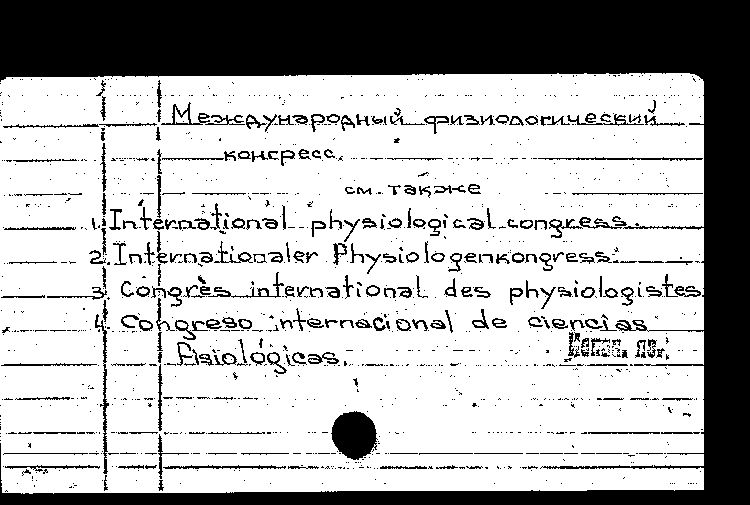 Международный физиологический
конгресс.
см. также
1. International physiological congress.
2. Internationaler Physiologenkongress.
3. Congrès international des physiologistes
4. Congreso internacional de ciencias
fisiológicas.